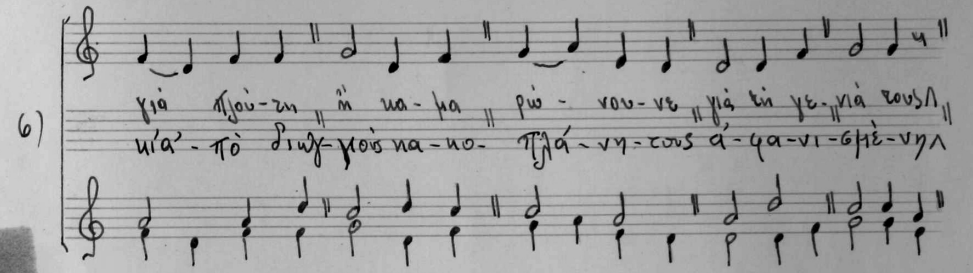 6)
γιὰ πλού-τη ἢ κα-μα ρώ-νου-νε γιὰ τὴ γε-νιά τους
κι' ἀ-πὸ διωγ-μοὺς κα-κο-πλά-νη-τους ἀ-φα-νι-σμέ-νη